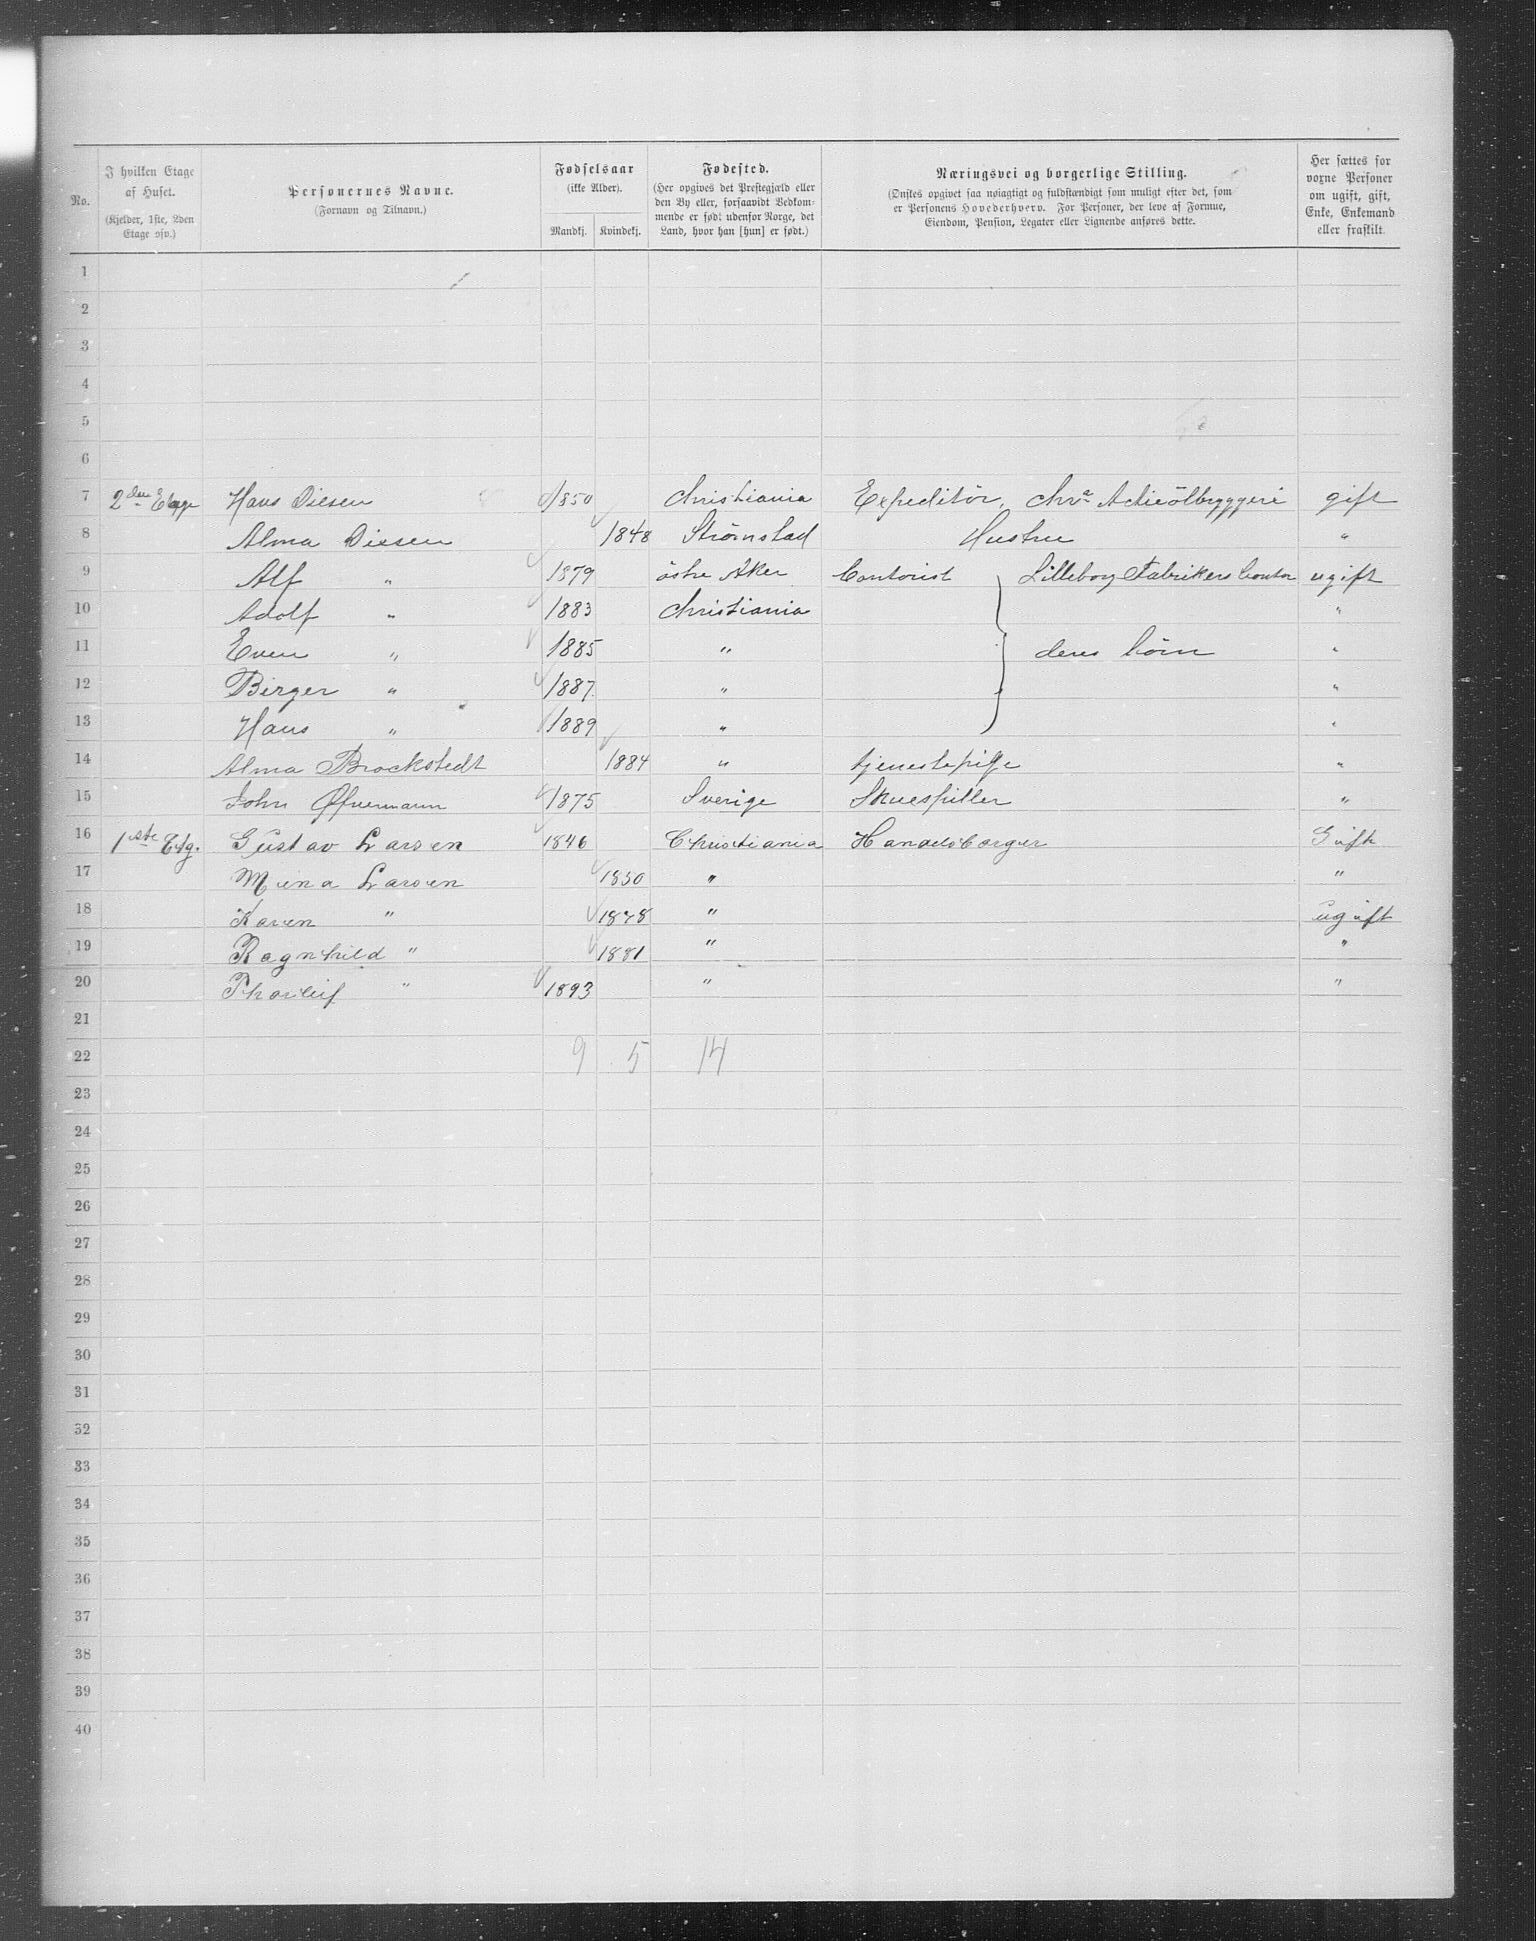 No.
I hvilken Etage af Huset.
(Kjelder, 1ste, 2den Etage osv.)
Personernes Navne.
(Fornavn og Tilnavn.)
Fødselsaar
(ikke Alder).
Mandkj. Kvindekj.
Fødested.
(Her opgives det Prestegjæld eller den By eller, forsaavidt Vedkommende er født udenfor Norge, det Land, hvor han [hun] er født.)
Næringsvei og borgerlige Stilling.
(Ønskes opgivet saa nøiagtigt og fuldstændigt som muligt efter det, som er Personens Hovederhverv. For Personer, der leve af Formue, Eiendom, Pension, Legater eller Lignende anføres dette.
Her sættes for voxne Personer om ugift, gift, Enke, Enkemand eller fraskilt.
1
2
3
4
5
6
7 2den Etage Hans Diesen 1850 Christiania Expeditör, Chra Actieölbryggeri gift
8 Alma Diesen 1848 Strömstad Hustru "
9 Alf " 1879 östre Aker Contorist Lilleborg Fabrikers Contor ugift
10 Adolf " 1883 Christiania "
11 Even " 1885 " deres börn "
12 Birger " 1887 " "
13 Hans " 1889 " "
14 Alma Brockstedt 1884 " tjenestepige "
15 John Øfvermann 1875 Sverige Skuespiller "
16 1ste Etg. Gustav Larsen 1846 Christiania Handelsborger Gift
17 Mina Larsen 1850 " "
18 Karen " 1878 " ugift
19 Ragnhild " 1881 " "
20 Thorleif " 1893 " "
21
22 9 5 14
23
24
25
26
27
28
29
30
31
32
33
34
35
36
37
38
39
40